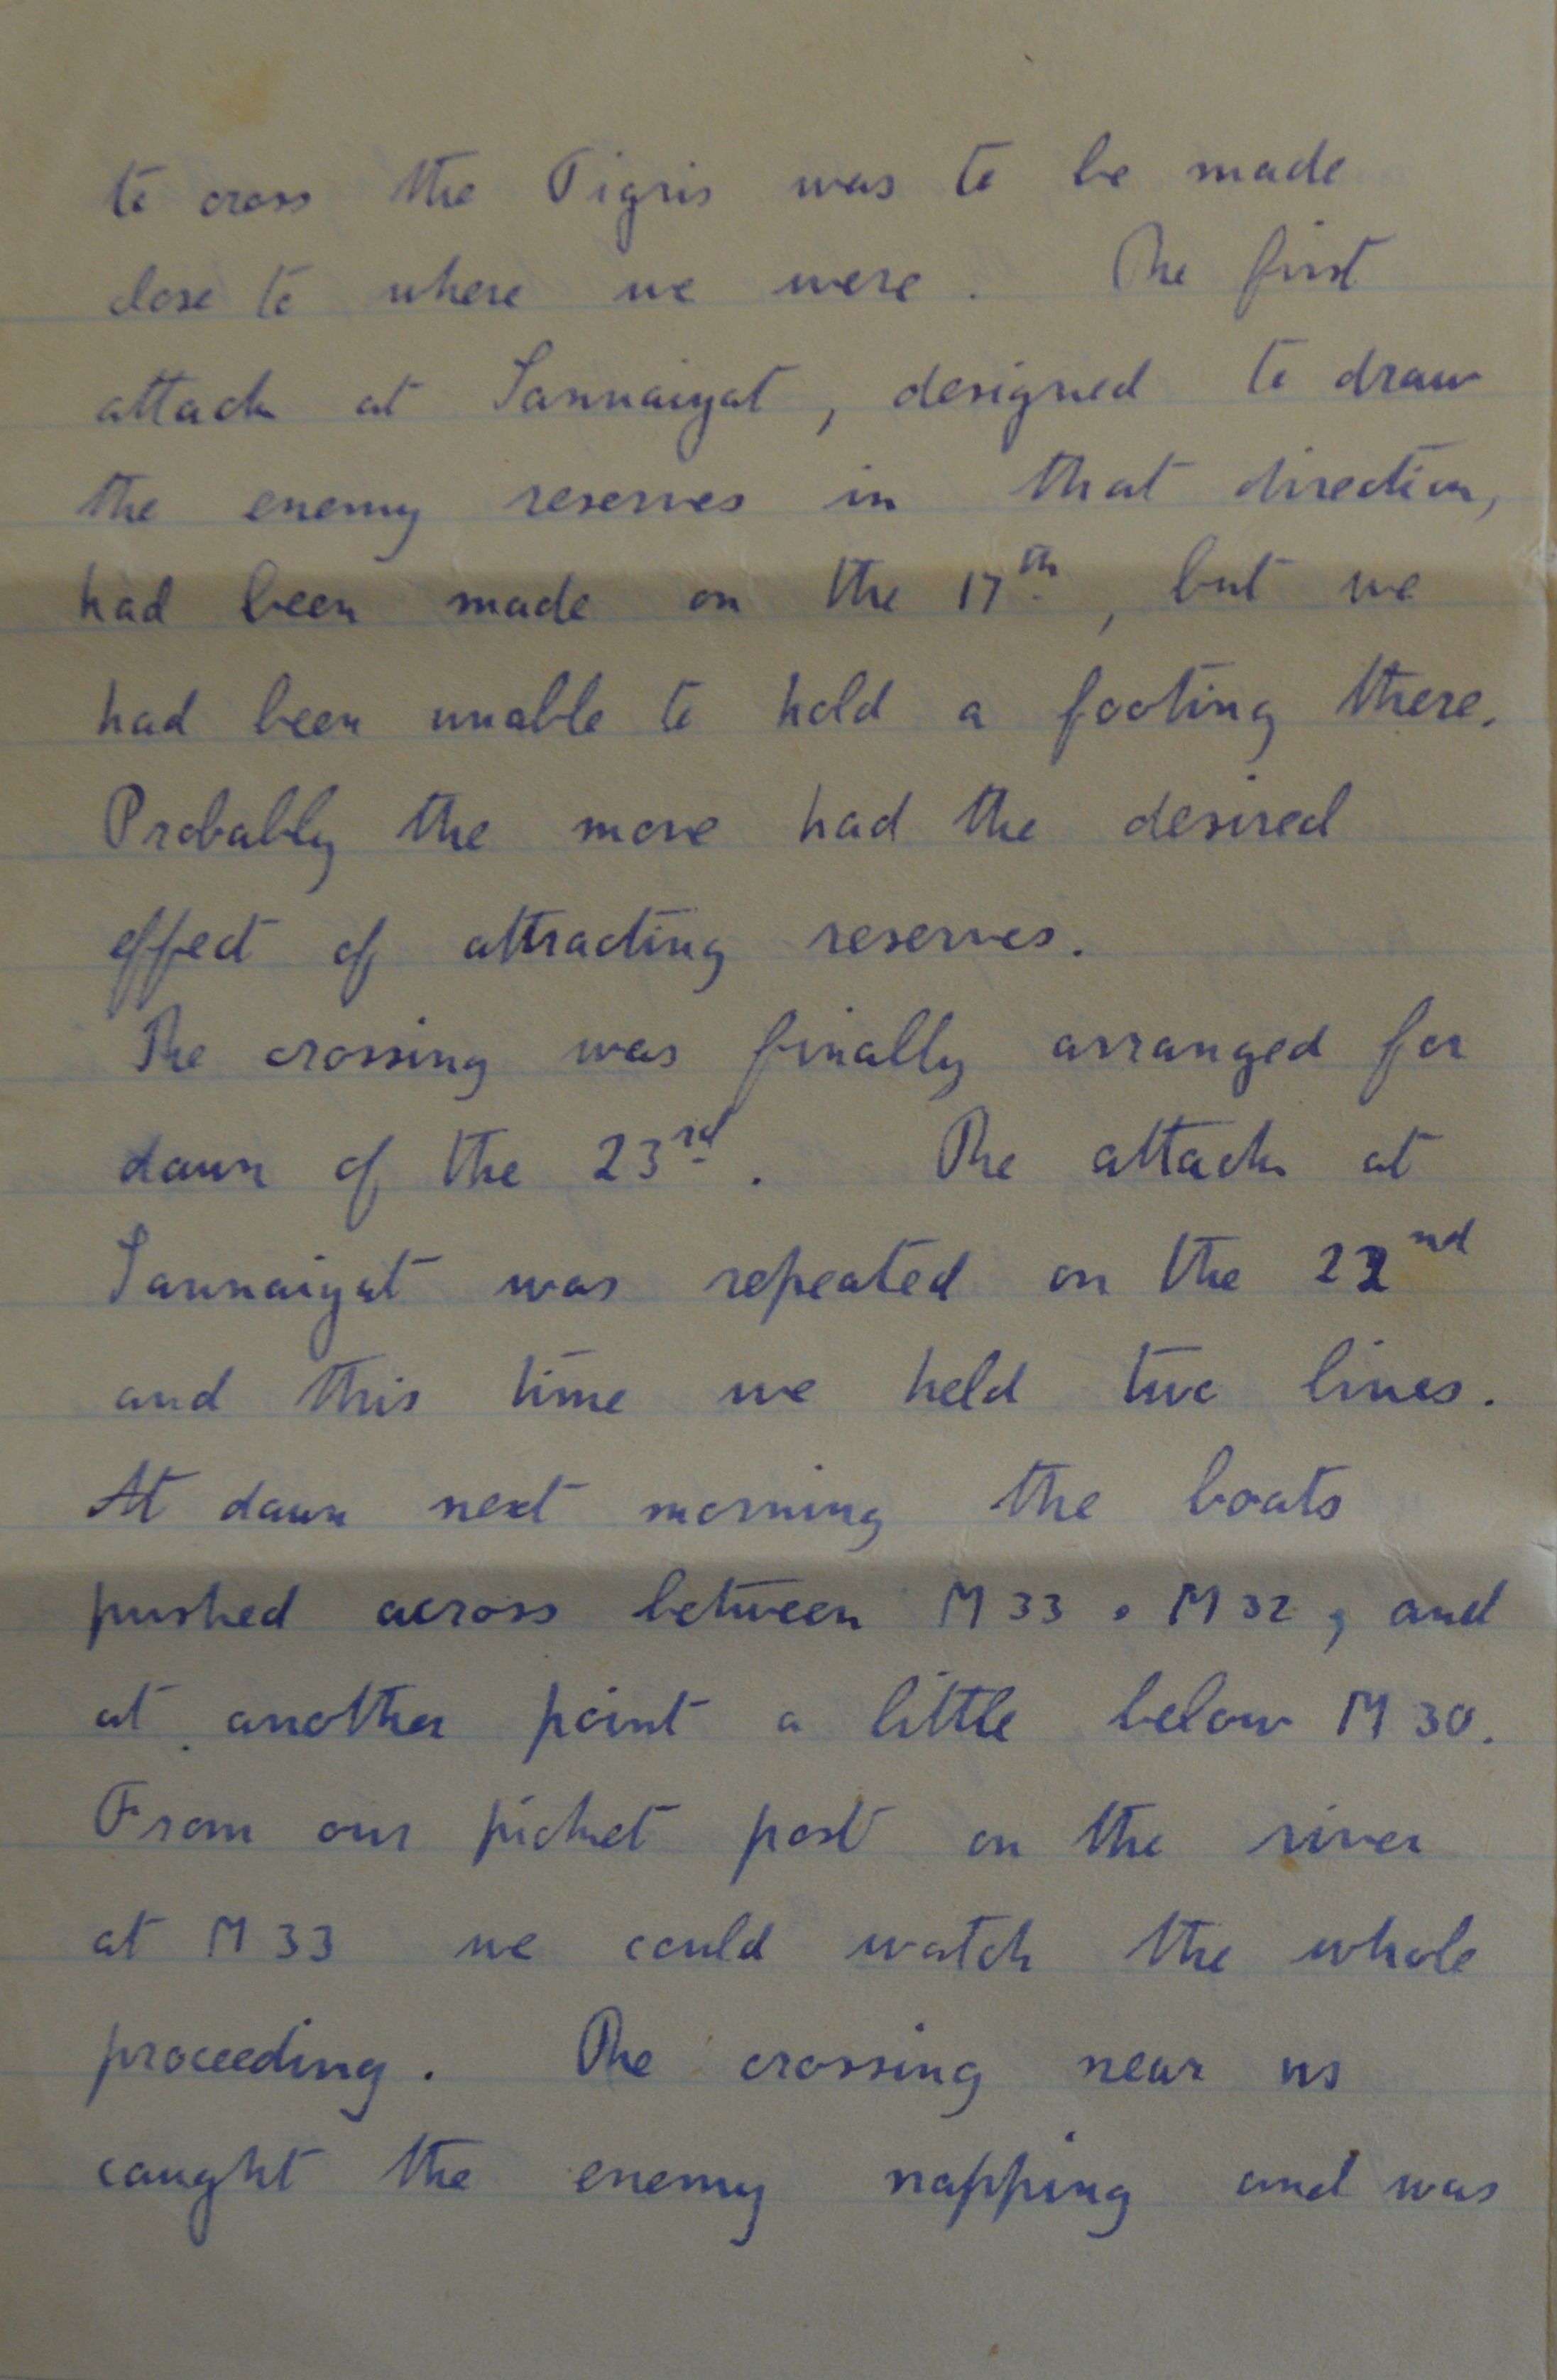 to cross the Tigris was to be made
close to where we were. The first
attack at Sannaiyat, designed to draw
the enemy reserves in that direction,
had been made on the 17th, but we
had been unable to hold a footing there.
Probably the move had the desired
effect of attracting reserves.
The crossing was finally arranged for
dawn of the 23rd. The attack at
Sannaiyat was repeated on the 22nd
and this time we held two lines.
At dawn next morning the boats
pushed across between M33 . M32, and
at another point a little below M30.
From our picket post on the river
at M33 we could watch the whole
proceeding. The crossing near us
caught the enemy napping and was